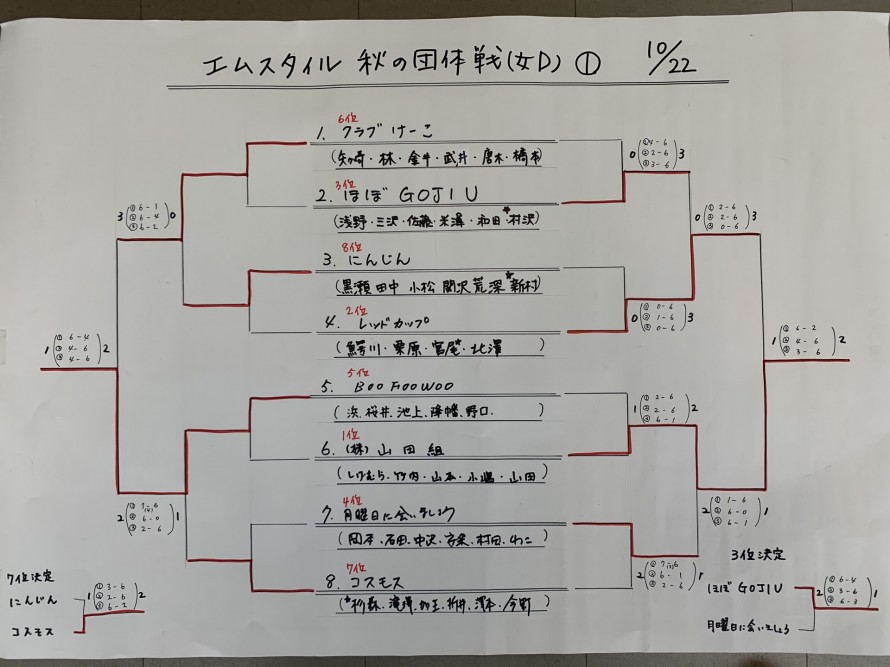 エムスタイル 秋の団体戦(女D) ① 10/22
6位
1. クラブ けーこ
(矢ヶ崎・林・金井・武井・唐木・橋本)
3位
2. ほぼ GOJIU
(浅野・三沢・佐藤・米澤・和田・*村沢)
8位
3. にんじん
(黒瀬 田中 小松 関沢 荒深 *新村)
2位
4. レッドカップ
栗原・宮尾・北澤
5位
5. BOO FOO WOO
(浜、桜井、池上、降幡、野口.)
1位
6. (株) 山田組
(しげむら、竹内・山本・小嶋・山田)
4位
7. 月曜日に会いましょう
石田、中沢、村田、
7位
8. コスモス
滝澤、柳井、澤本・今町)
3 (① 6-1 ② 6-4 ③ 6-2) 0
1 (① 6-4 ② 4-6 ③ 4-6) 2
2 (① 7-6 ② 6-0 ③ 2-6) 1
0 (① 4-6 ② 2-6 ③ 3-6) 3
0 (① 0-6 ② 1-6 ③ 0-6) 3
1 (① 2-6 ② 2-6 ③ 6-1) 2
2 (① 7-6 ② 6-1 ③ 2-6) 1
0 (① 2-6 ② 2-6 ③ 0-6) 3
2 (① 1-6 ② 6-0 ③ 6-1) 1
1 (① 6-2 ② 4-6 ③ 3-6) 2
7位決定
にんじん
コスモス
1 (① 3-6 ② 2-6 ③ 6-2) 2
3位決定
ほぼ GOJIU
月曜日に会いましょう
2 (① 6-4 ② 3-6 ③ 6-3) 1